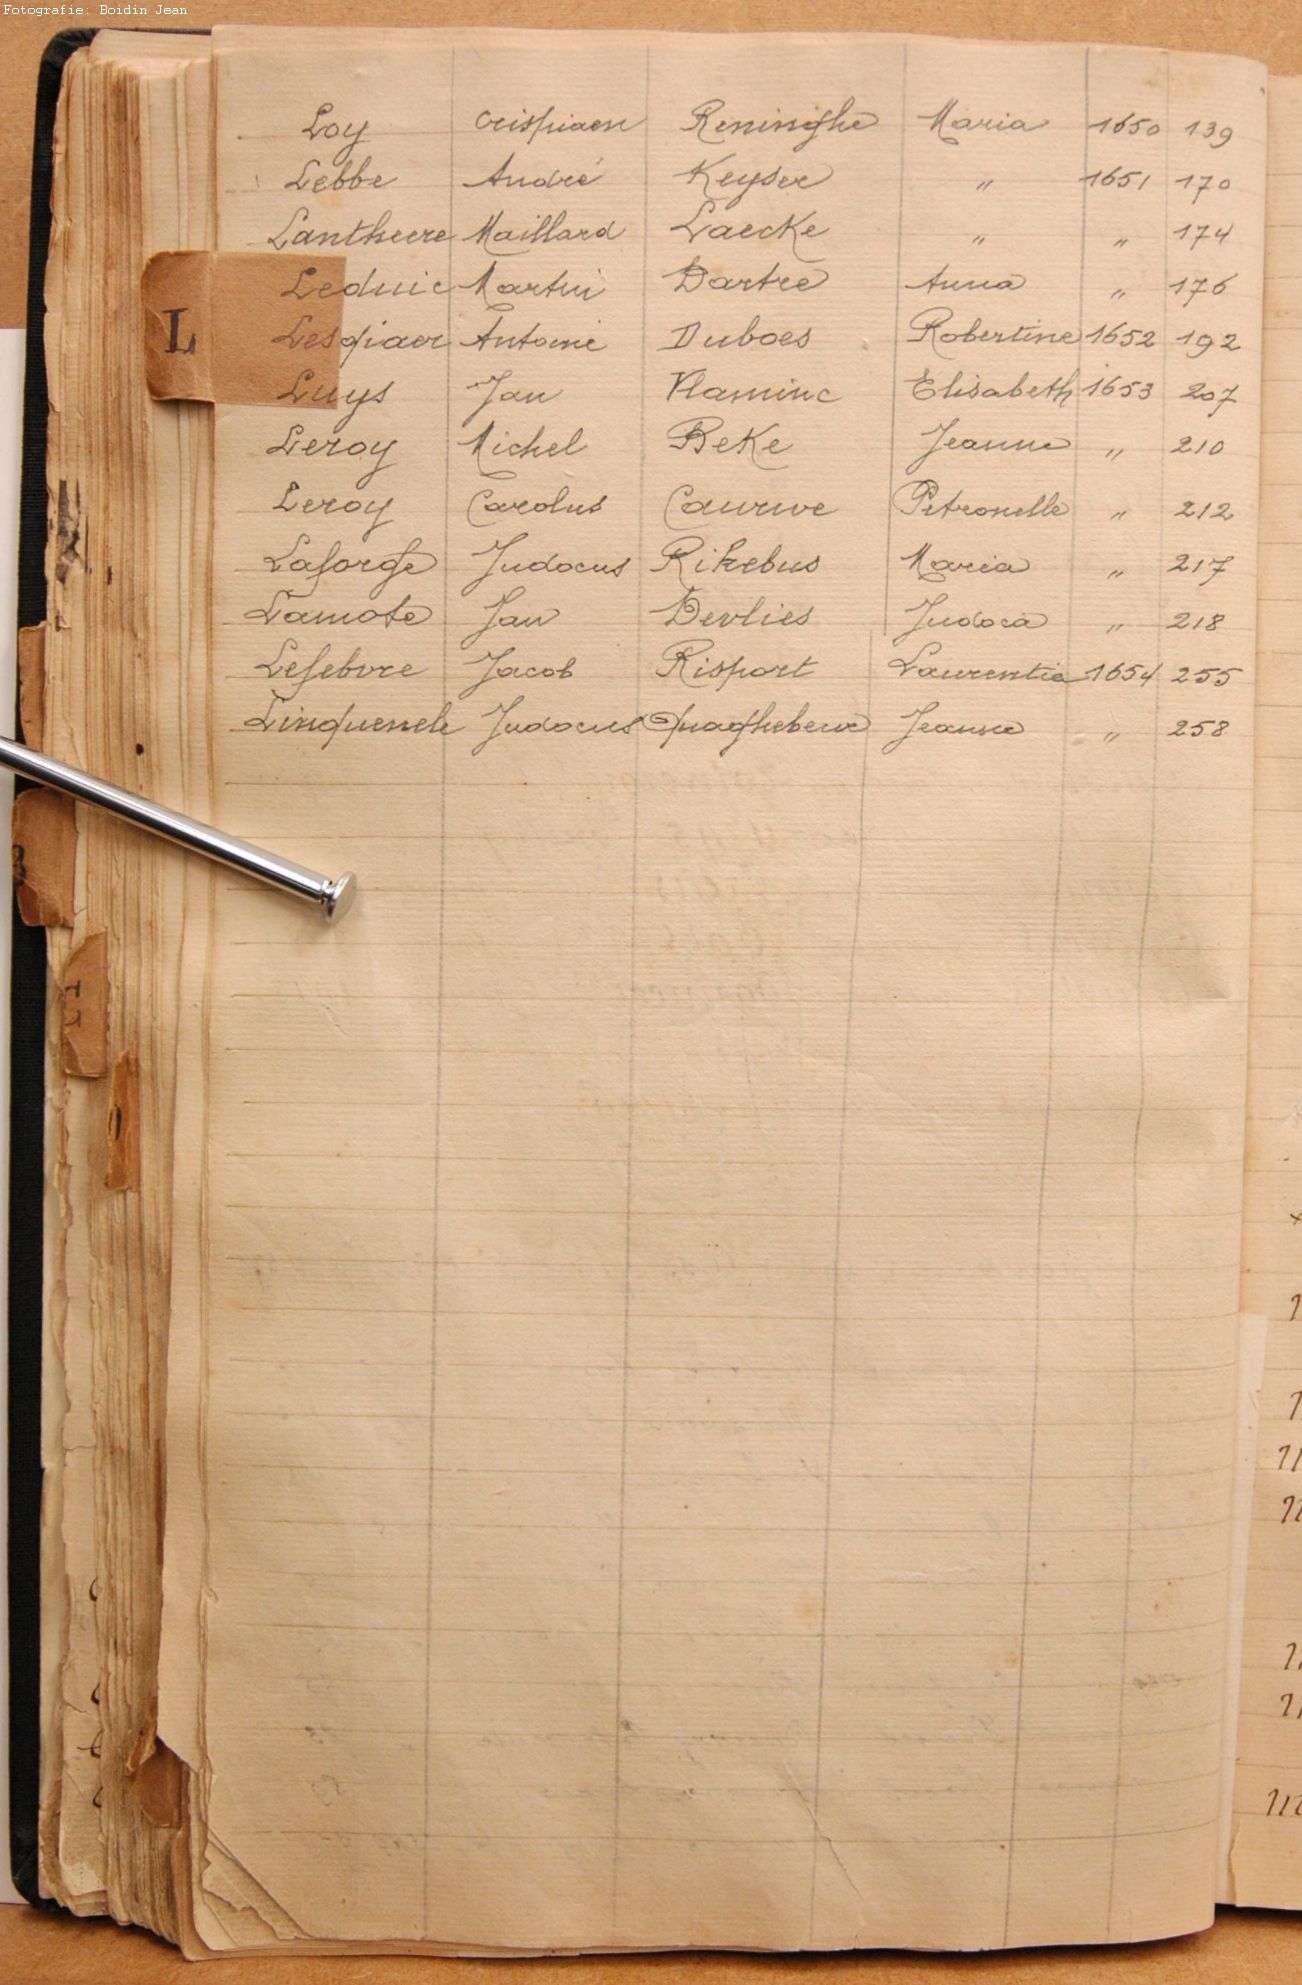 Fotografie: Boidin Jean
Loy Crispiaen Reninghe Maria 1650 139
Lebbe André Keyser " " 1651 170
Lantheere Maillard Laecke " " " 174
Leduic Martin Dartre Anna " 176
Lesqiaer Antoine Duboes Robertine 1652 192
Luys Jan Vlaminc Elisabeth 1653 207
Leroy Michel Beke Jeanne " 210
Leroy Carolus Caurwe Petronelle " 212
Laforge Judocus Rikebus Maria " 217
Lamote Jan Devlies Judoca " 218
Lefebvre Jacob Risport Laurentia 1654 255
Linquenele Judocus Quaghebeur Jeanne " 258
L